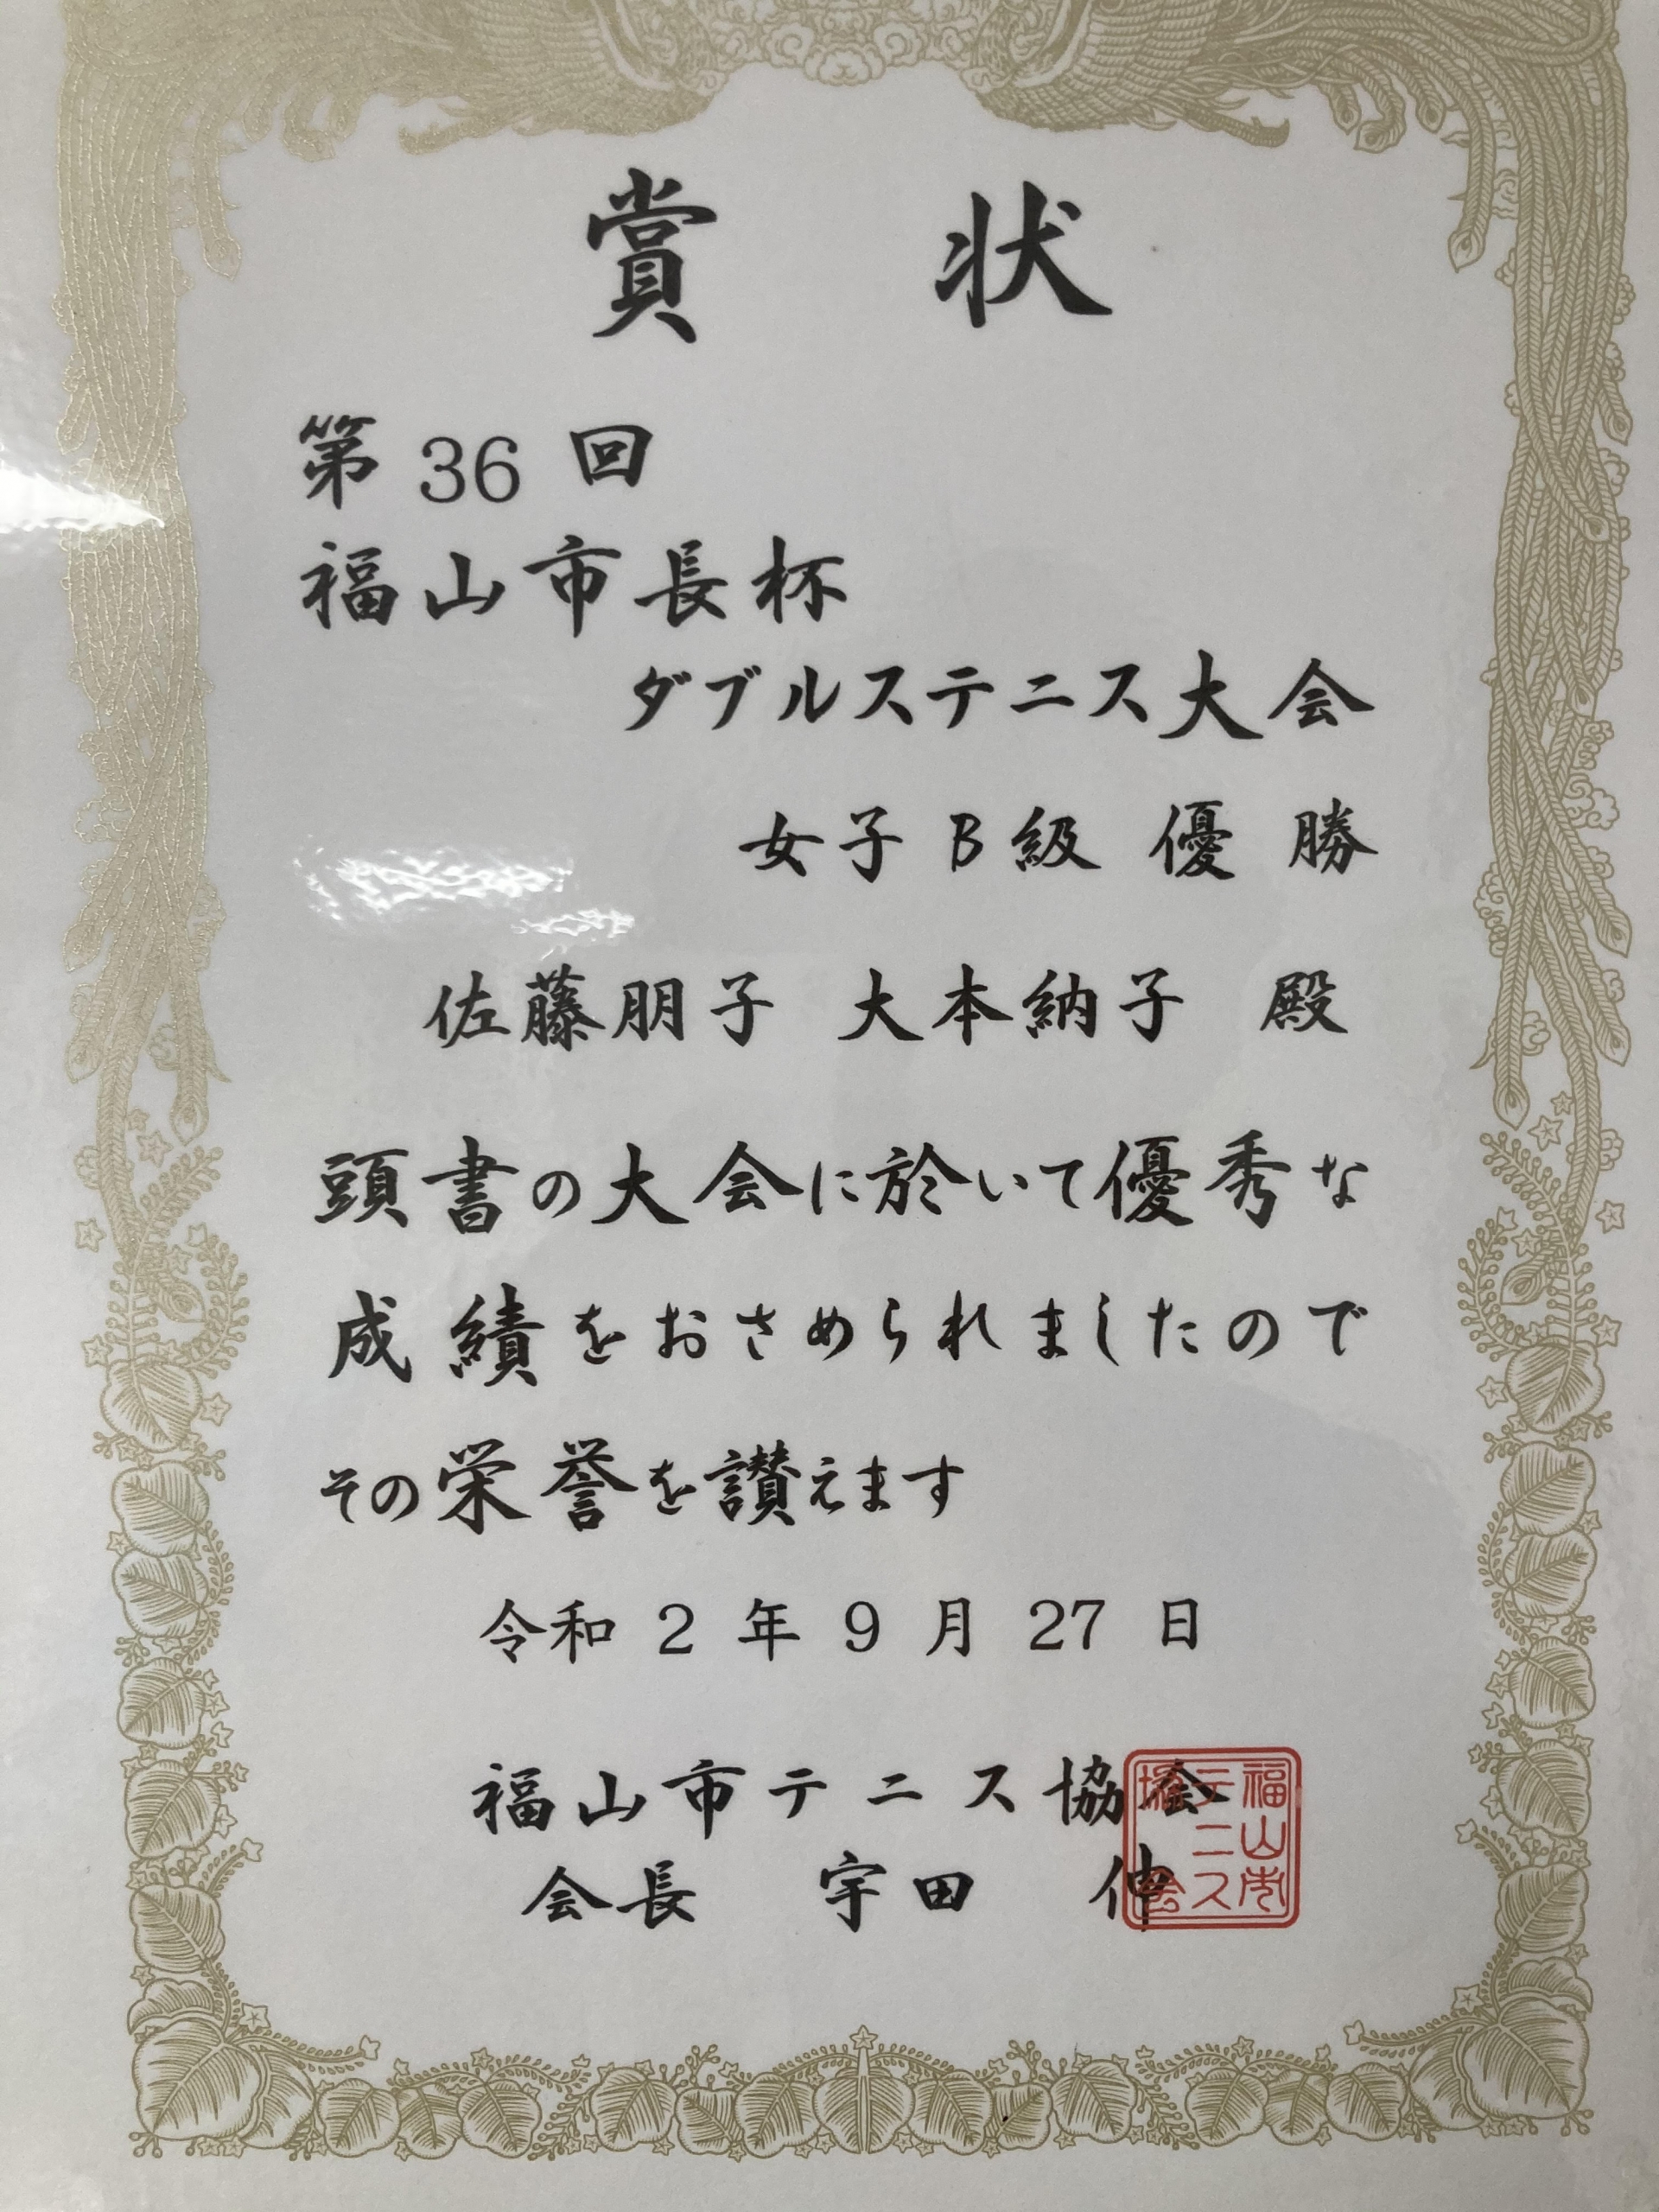 賞状
第 36 回
福山市長杯
ダブルステニス大会
女子 B級 優勝
佐藤朋子 大本納子 殿
頭書の大会に於いて優秀な
成績をおさめられましたので
その栄誉を讃えます
令和 2 年 9 月 27 日
福山市テニス協会
会長 宇田 伸
福山市
テニス
協会